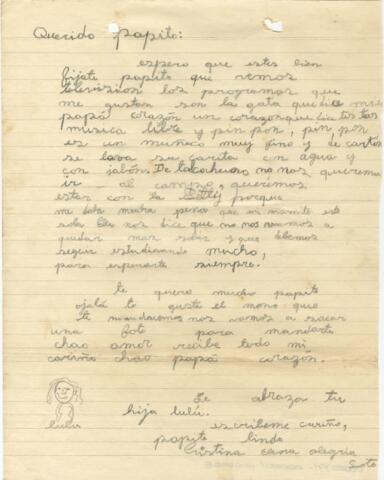 Querido papito:
espero que estes bien
fijate papito que vemos
television los programas que
me gustan son la gata
papá corazón un
musica libre y pin pon, pin pon
es un muñeco muy fino y de carton
se lava su carita con agua y
con jabón. De talcahuano no nos queremos
ir al campo, queremos
estar con la Betty porque
me da mucha pena que mi mamita este
sola Ella nos dice que no nos vamos a
quedar mas solas y que debemos
seguir estudiando mucho,
para esperarte siempre.
te quero mucho papito
ojalá te guste el mono que
te mandamos nos vamos a sacar
una foto para mandarte
chao amor recibe todo mi
cariño chao papá corazón.
Le abraza tu
hija lulú.
lulu
escribeme cariño,
papito lindo
Cristina elena alegria
Soto